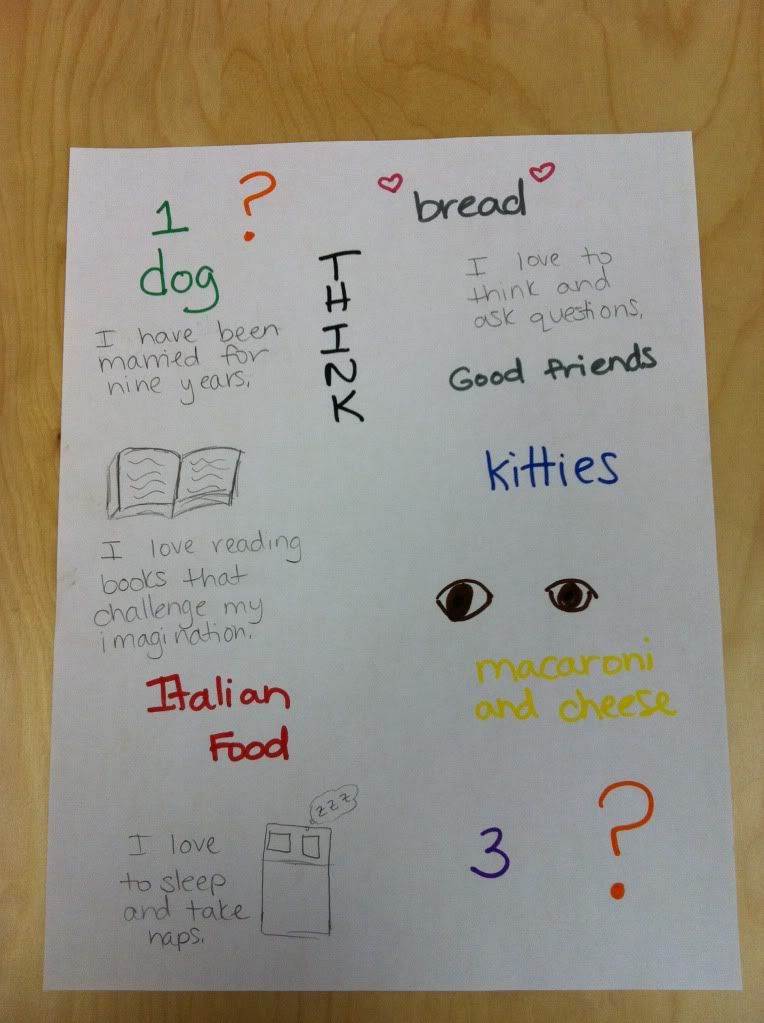 1 ?
dog
I have been
married for
nine years.
THINK
bread
I love to
think and
ask questions.
Good friends
kitties
I love reading
books that
challenge my
imagination.
Italian
Food
macaroni
and cheese
zzz
I love
to sleep
and take
naps.
3 ?